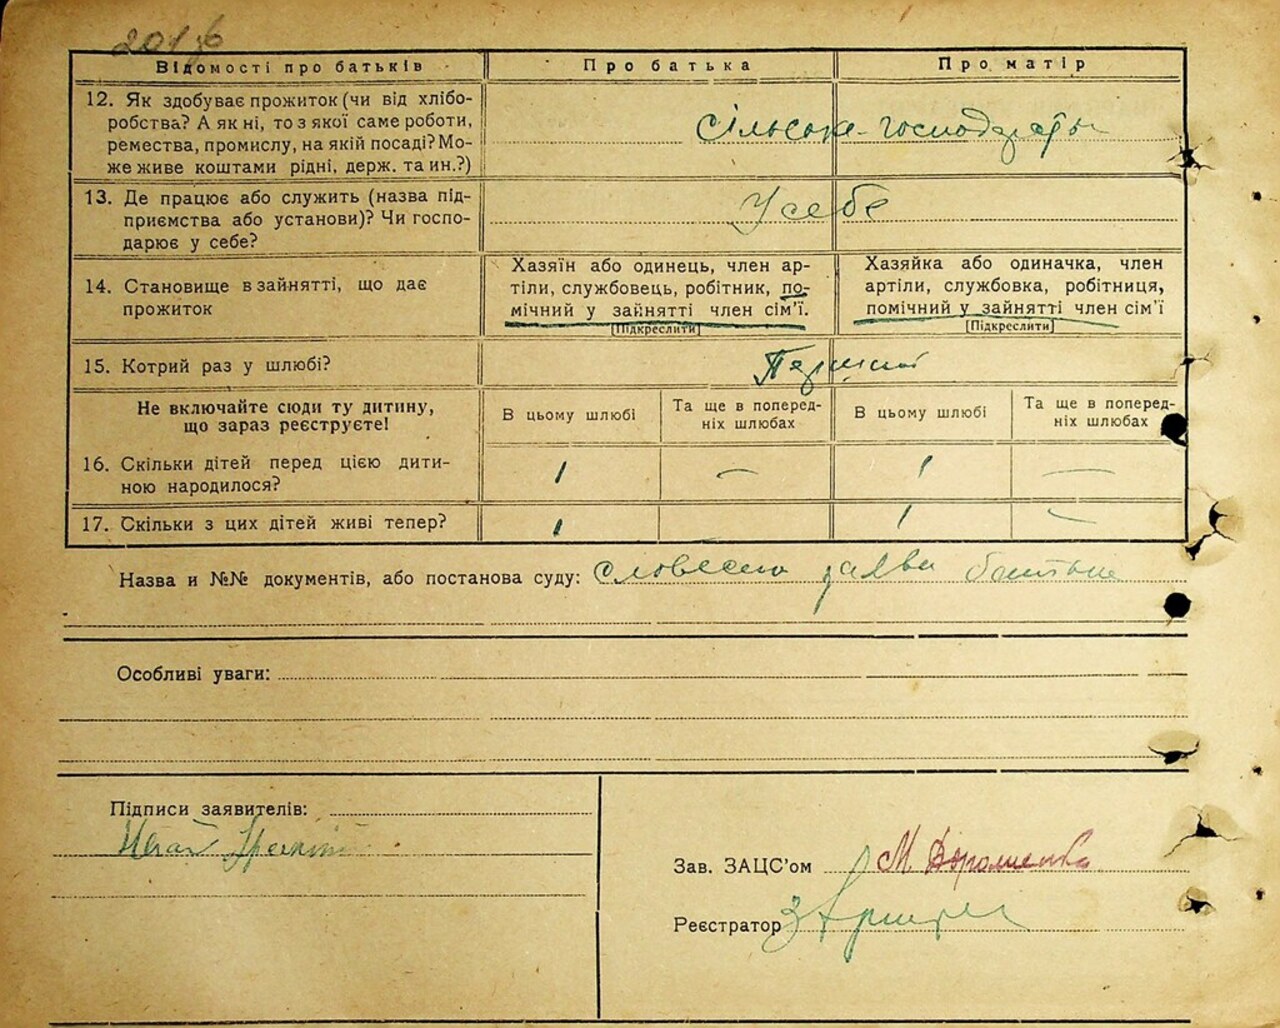 Відомості про батьків
Про батька
Про матір
12. Як здобуває прожиток (чи від хлібо-
робства? А як ні, то з якої саме роботи,
ремества, промислу, на якій посаді? Мо-
же живе коштами рідні, держ. та ин.?)
13. Де працює або служить (назва під-
приємства або установи)? Чи госпо-
дарює у себе?
У себе
14. Становище в зайнятті, що дає
прожиток
Хазяїн або одинець, член ар-
тіли, службовець, робітник, по-
мічний у зайнятті член сім'ї.
[Підкреслити]
Хазяйка або одиначка, член
артіли, службовка, робітниця,
помічний у зайнятті член сім'ї
[Підкреслити]
15. Котрий раз у шлюбі?
Перший
Не включайте сюди ту дитину,
що зараз реєструєте!
В цьому шлюбі
Та ще в поперед-
ніх шлюбах
В цьому шлюбі
Та ще в поперед-
ніх шлюбах
16. Скільки дітей перед цією дити-
ною народилося?
1 — 1 —
17. Скільки з цих дітей живі тепер?
1 1 —
Назва и №№ документів, або постанова суду: Словесна заява батька
Особливі уваги:
Підписи заявителів:
Зав. ЗАЦС'ом М. Дорошенко
Реєстратор